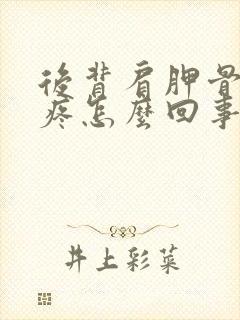 後背肩胛骨
疼怎麼回事
井上彩菜